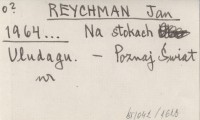 o?
REYCHMAN Jan
1964... Na stokach
Uludagu. – Poznaj Świat
nr